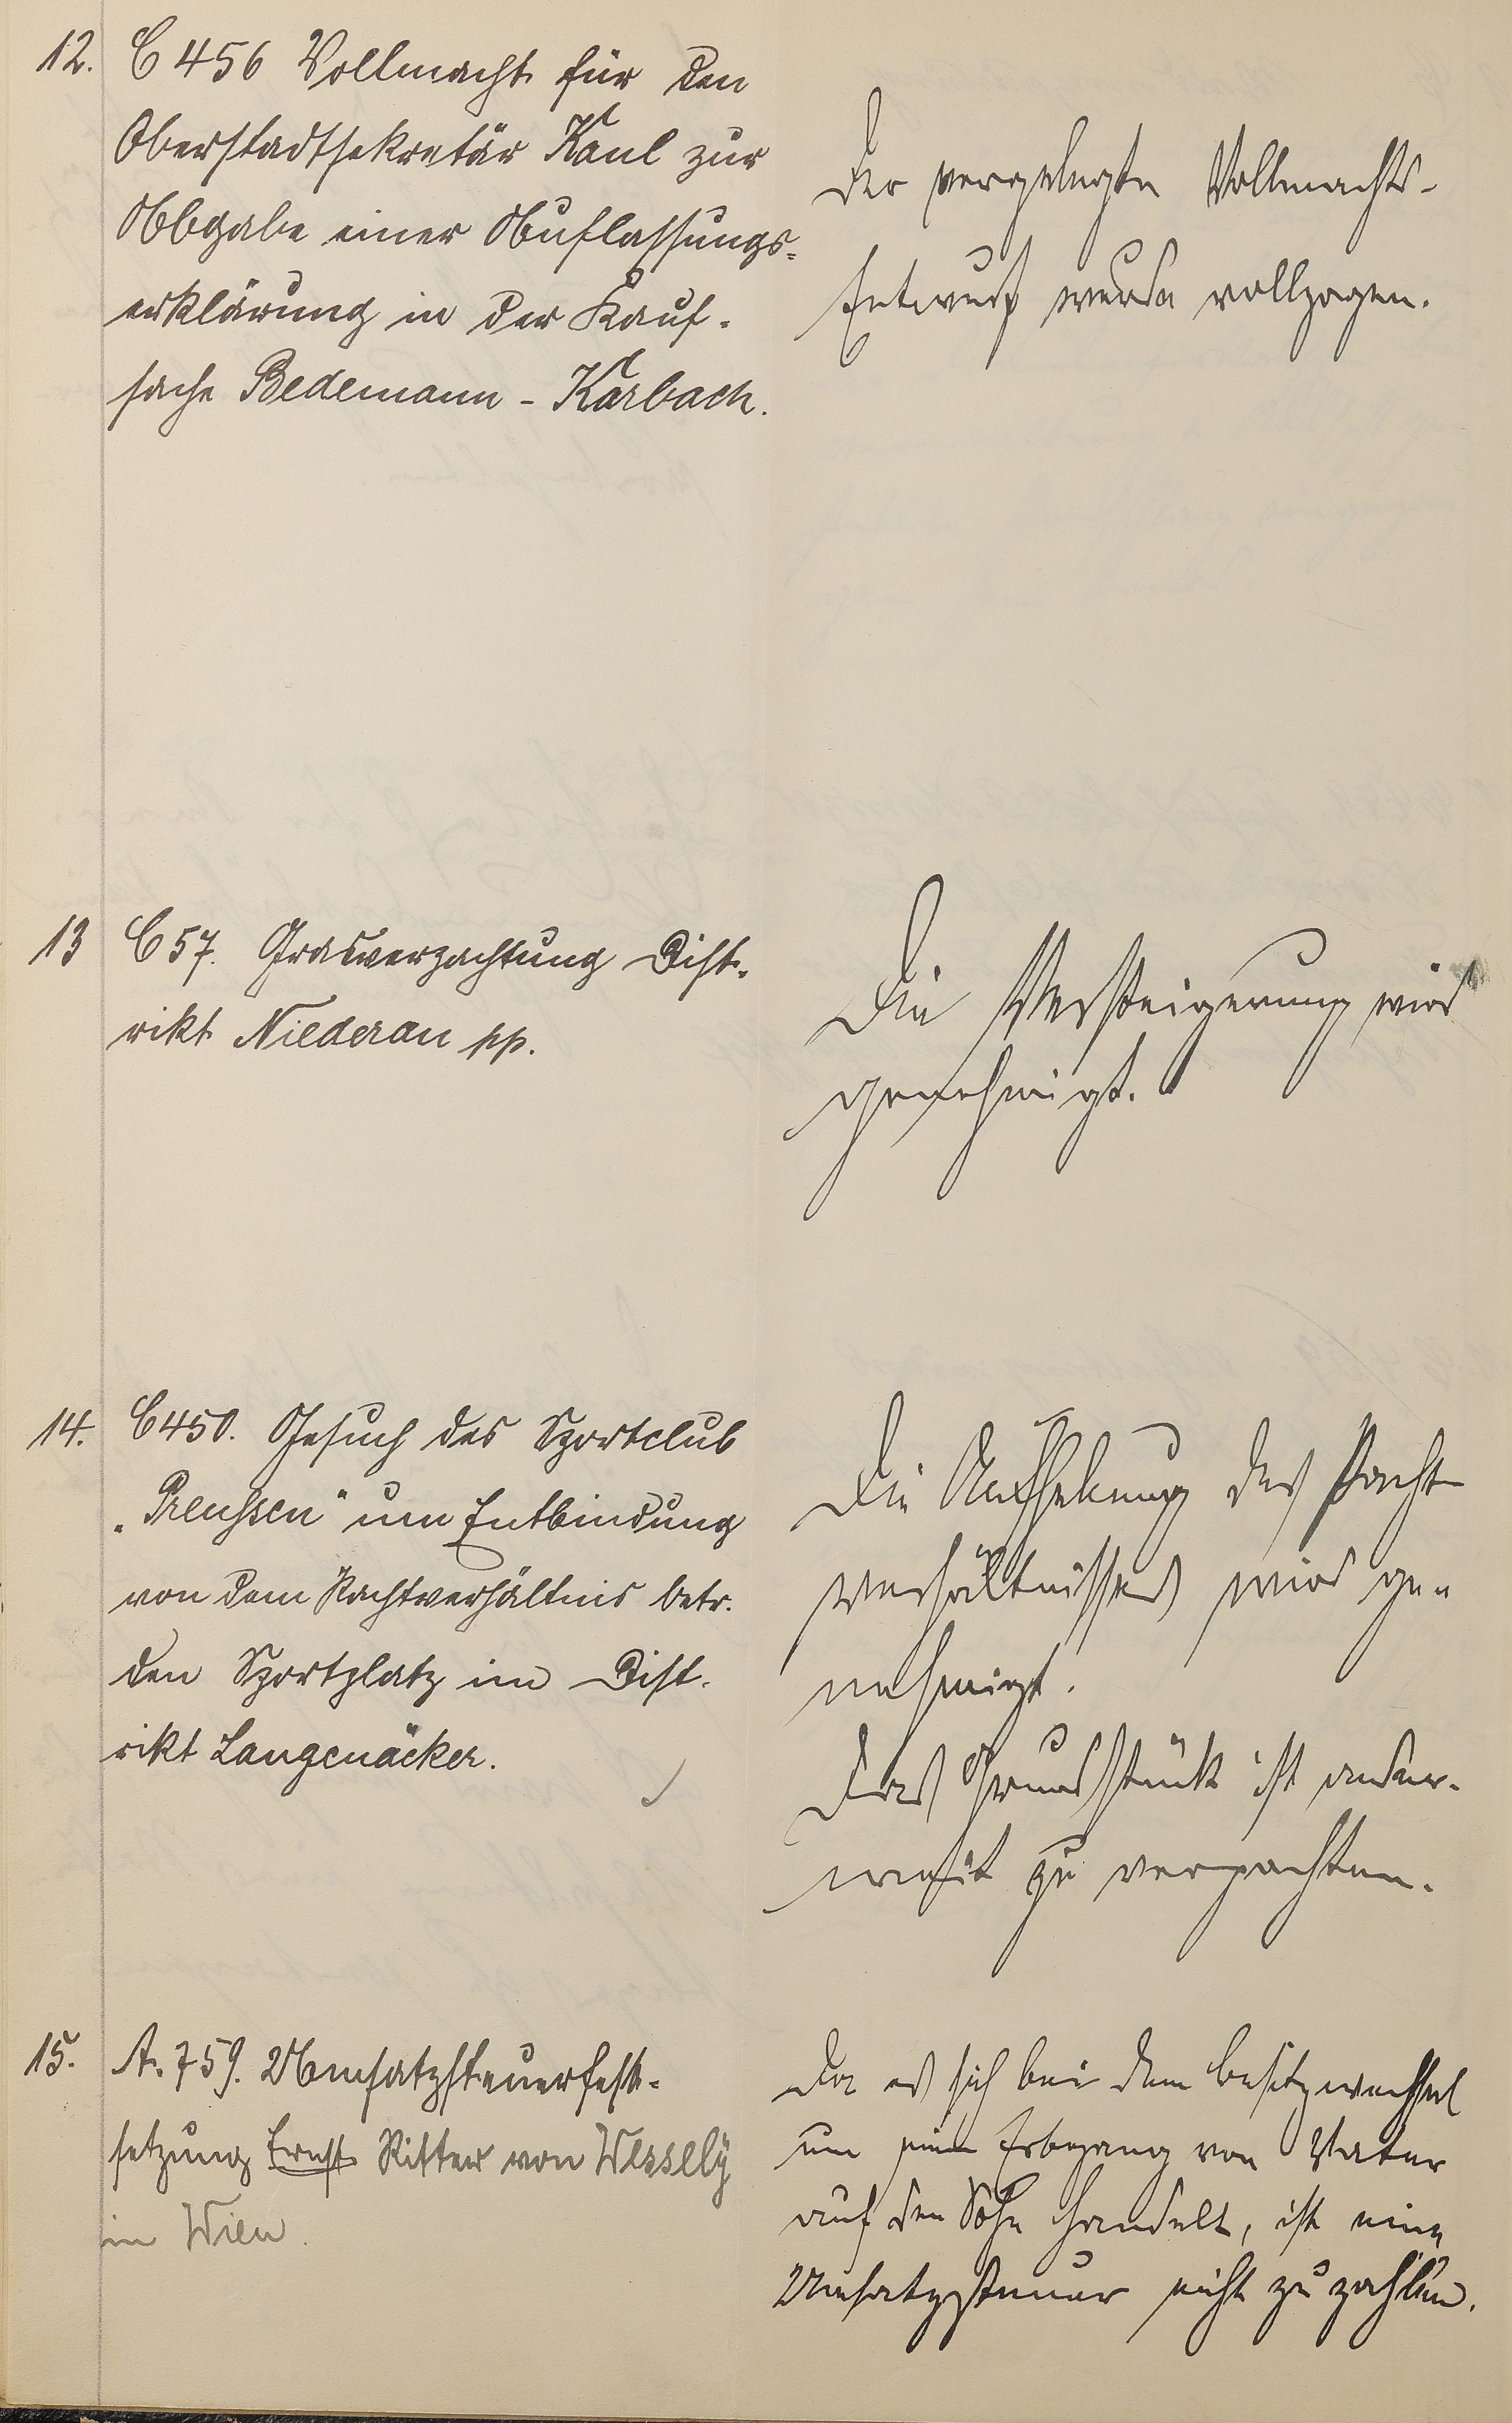 12. C 456 Vollmacht für den
Oberstadtsekretär Kaul zur
Abgabe einer Auflassungs-
erklärung in der Kauf-
sache Bedemann - Karbach.
Der vorgelegte Vollmachts-
Entwurf wurde vollzogen.
13 C 57. Grasverpachtung Dist-
rikt Niederau pp.
Die Versteigerung wird
genehmigt.
14. C 450. Gesuch des Sportclub
„Preussen" um Entbindung
von dem Pachtverhältnis betr.
den Sportplatz im Dist-
rikt Langenäcker.
Die Aufhebung des Pacht
verhältnisses wird ge-
nehmigt.
Das Grundstück ist ander-
weit zu verpachten.
15. A. 759. Umsatzsteuerfest-
setzung Ernst Ritter von Wessely
in Wien.
Da es sich bei dem Besitzwechsel
um einen Erbgang von Vater
auf den Sohn handelt, ist eine
Umsatzsteuer nicht zu zahlen.